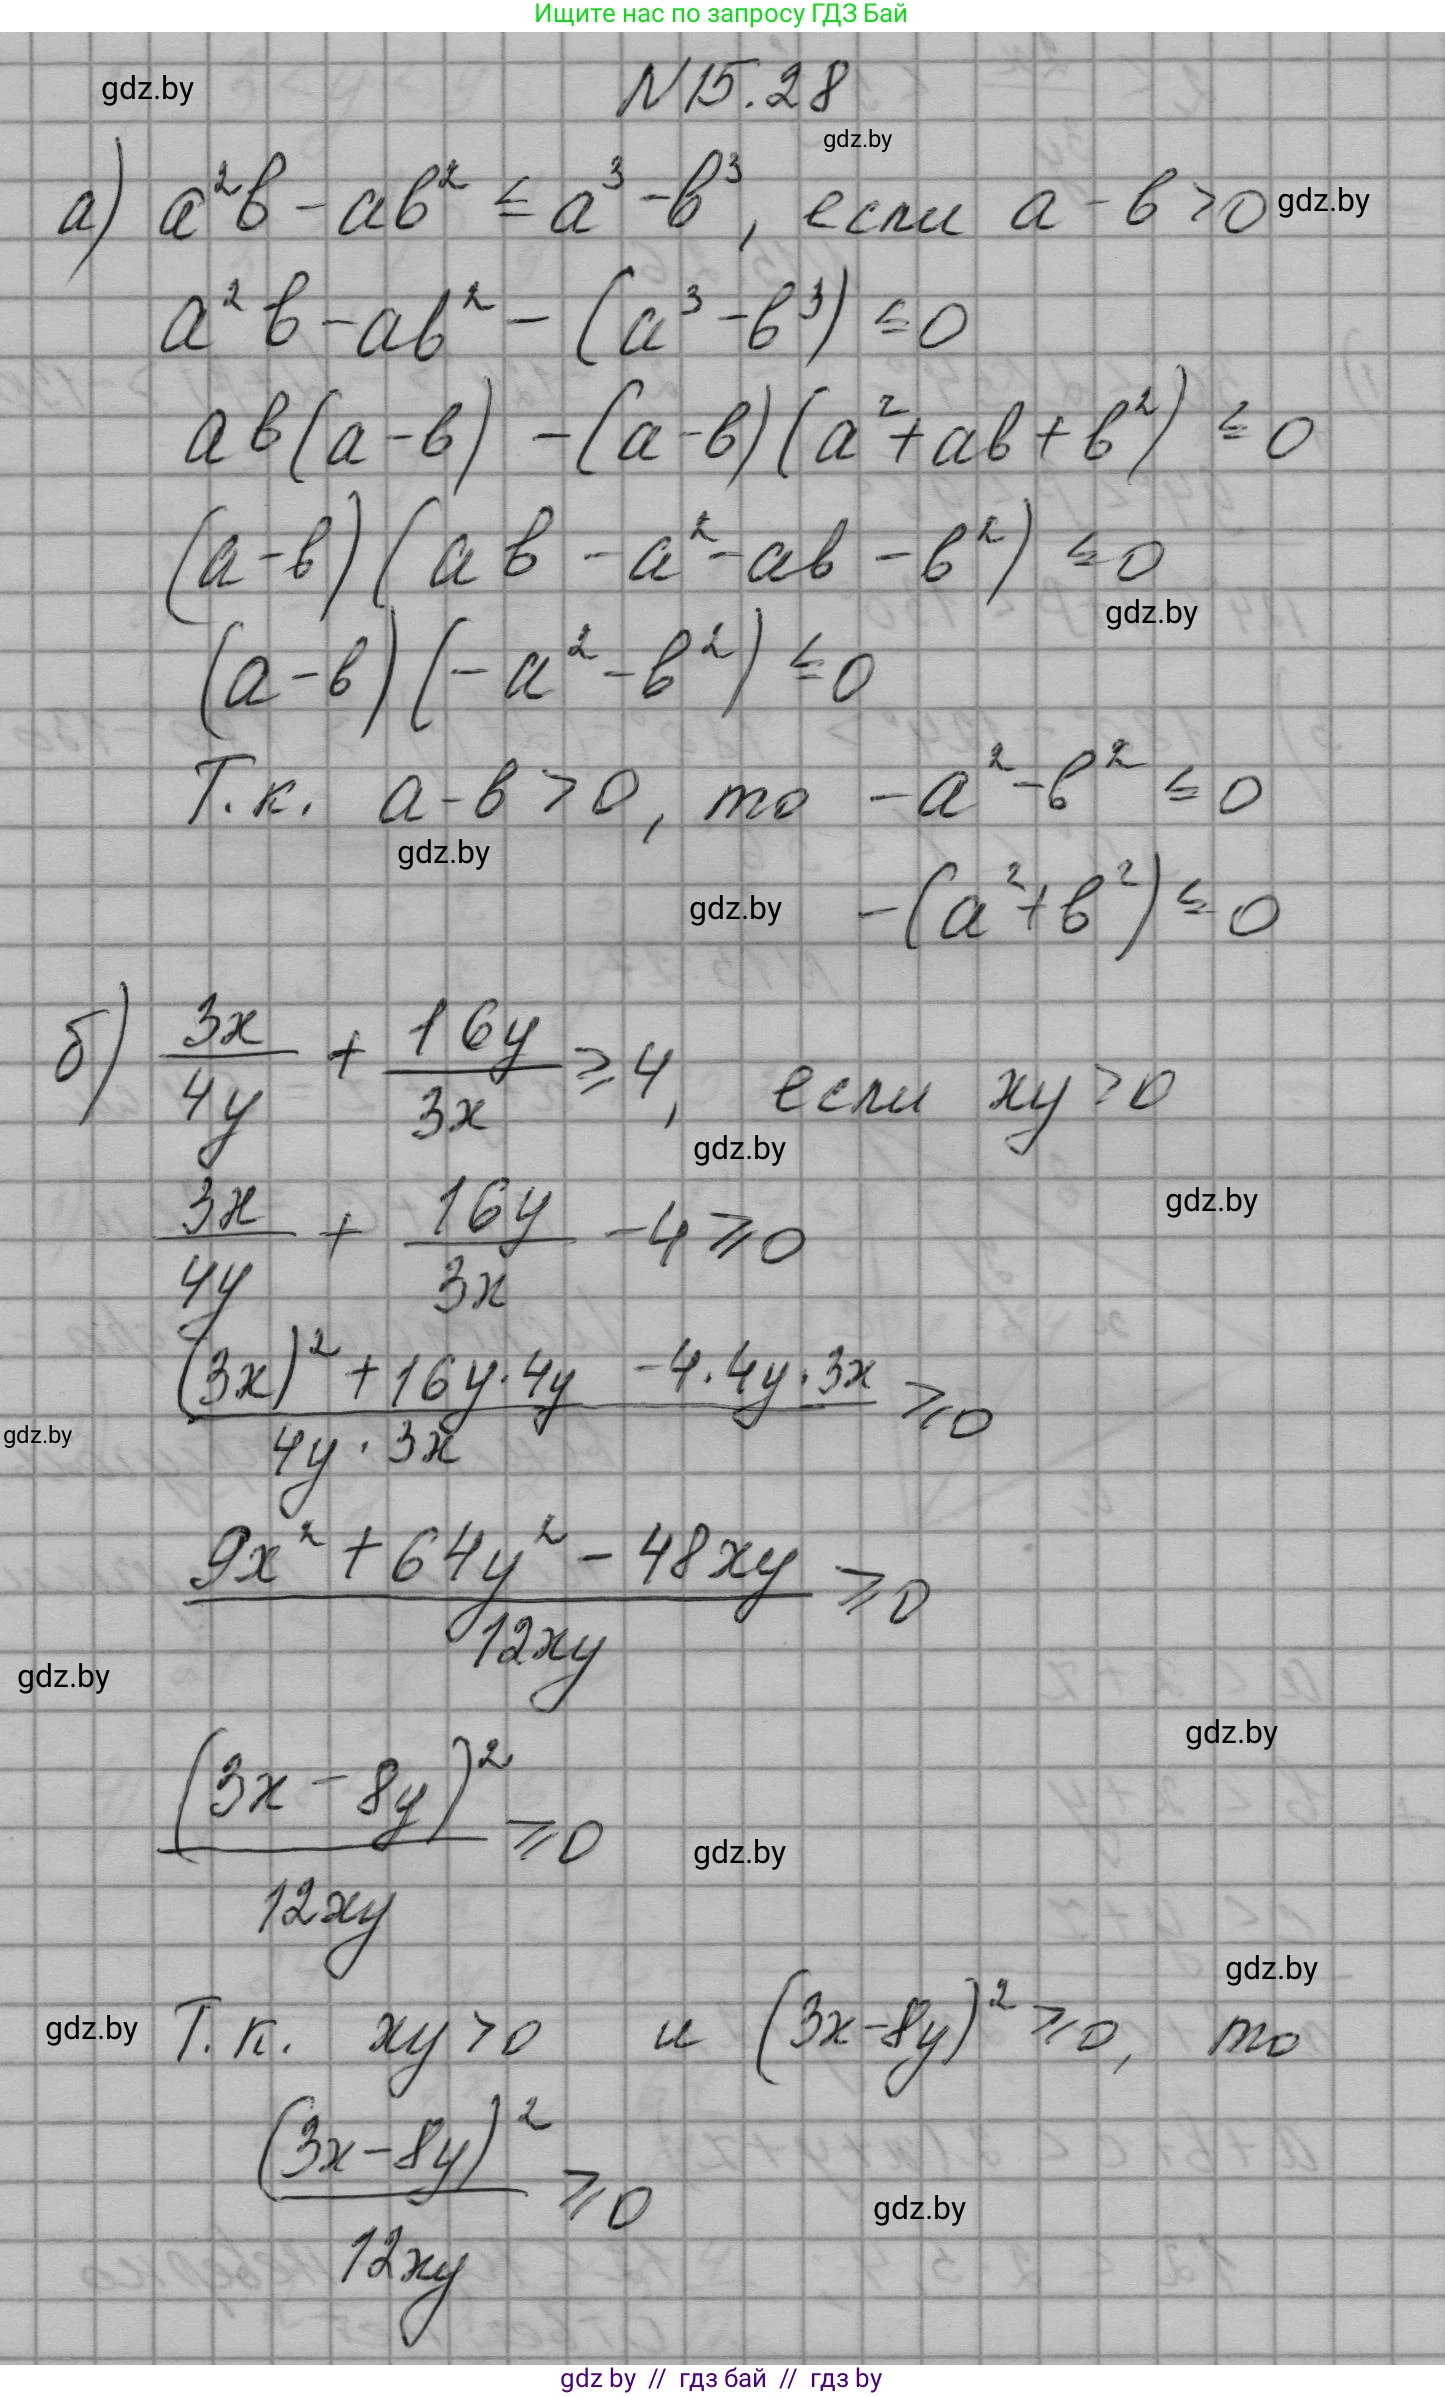 Ищите нас по запросу ГДЗ Бай
gdz.by
N15.28
gdz.by
а) a²b - ab² ≤ a³ - b³, если a - b > 0
gdz.by
a²b - ab² - (a³ - b³) ≤ 0
ab(a - b) - (a - b)(a² + ab + b²) ≤ 0
(a - b)(ab - a² - ab - b²) ≤ 0
gdz.by
(a - b)(-a² - b²) ≤ 0
Т.к. a - b > 0, то -a² - b² ≤ 0
gdz.by
gdz.by
-(a² + b²) ≤ 0
б) 3x/4y + 16y/3x ≥ 4, если xy > 0
gdz.by
gdz.by
3x/4y + 16y/3x - 4 ≥ 0
((3x)² + 16y·4y - 4·4y·3x)/(4y·3x) ≥ 0
gdz.by
(9x² + 64y² - 48xy)/12xy ≥ 0
gdz.by
gdz.by
(3x - 8y)²/12xy ≥ 0
gdz.by
gdz.by
gdz.by
Т.к. xy > 0 и (3x - 8y)² ≥ 0, то
(3x - 8y)²/12xy ≥ 0
gdz.by
gdz by // гдз бай // гдз by